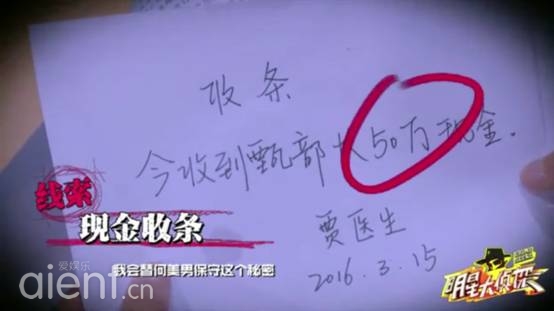 收条
今收到甄部长50万现金.
贾医生
2016.3.15
线索
现金收条
我会替何美男保守这个秘密
爱娱乐
aient.cn
明星大侦探